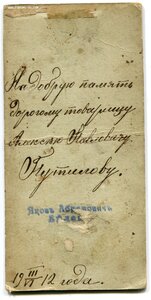 На добрую память
дорогому товарищу
Алексею Павловичу
Путилову.
Яковъ Абрамовичъ
19 III/VI 12 года.